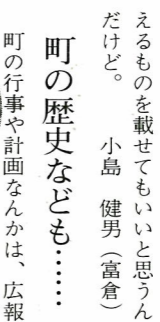 えるものを載せてもいいと思うん
だけど。　　小島　健男（富倉）
町の歴史なども……
町の行事や計画なんかは、広報